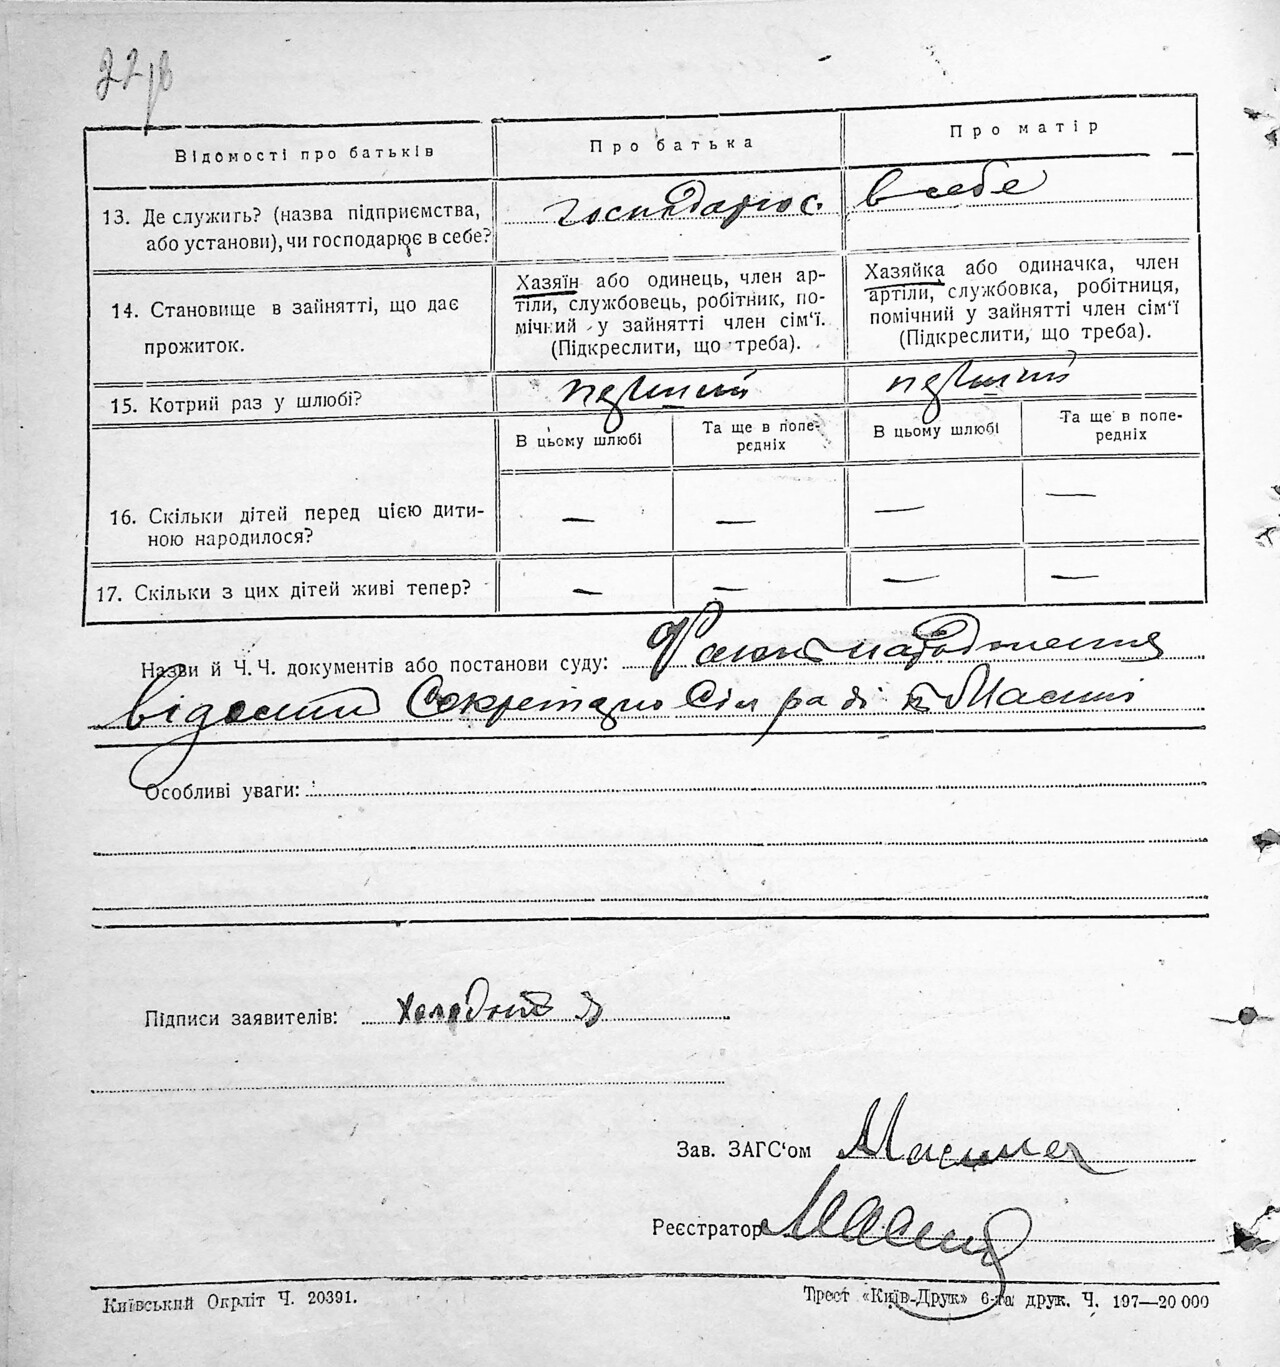 22 зв
Відомості про батьків
Про батька
Про матір
13. Де служить? (назва підприємства,
або установи), чи господарює в себе?
господарює в себе
14. Становище в зайнятті, що дає
прожиток.
Хазяїн або одинець, член ар-
тілі, службовець, робітник, по-
мічний у зайнятті член сім'ї.
(Підкреслити, що треба).
Хазяйка або одиначка, член
артіли, службовка, робітниця,
помічний у зайнятті член сім'ї
(Підкреслити, що треба).
15. Котрий раз у шлюбі?
перший
перший
В цьому шлюбі
Та ще в попе-
редніх
В цьому шлюбі
Та ще в попе-
редніх
16. Скільки дітей перед цією дити-
ною народилося?
— — — —
17. Скільки з цих дітей живі тепер?
— — — —
Назви й Ч. Ч. документів або постанови суду: Факт народження
відомий Секретарю Сільради
Особливі уваги:
Підписи заявителів: Холодний
Зав. ЗАГС'ом
Реєстратор
Київський Окрліт Ч. 20391.
Трест «Київ-Друк» 6-та друк. Ч. 197—20 000